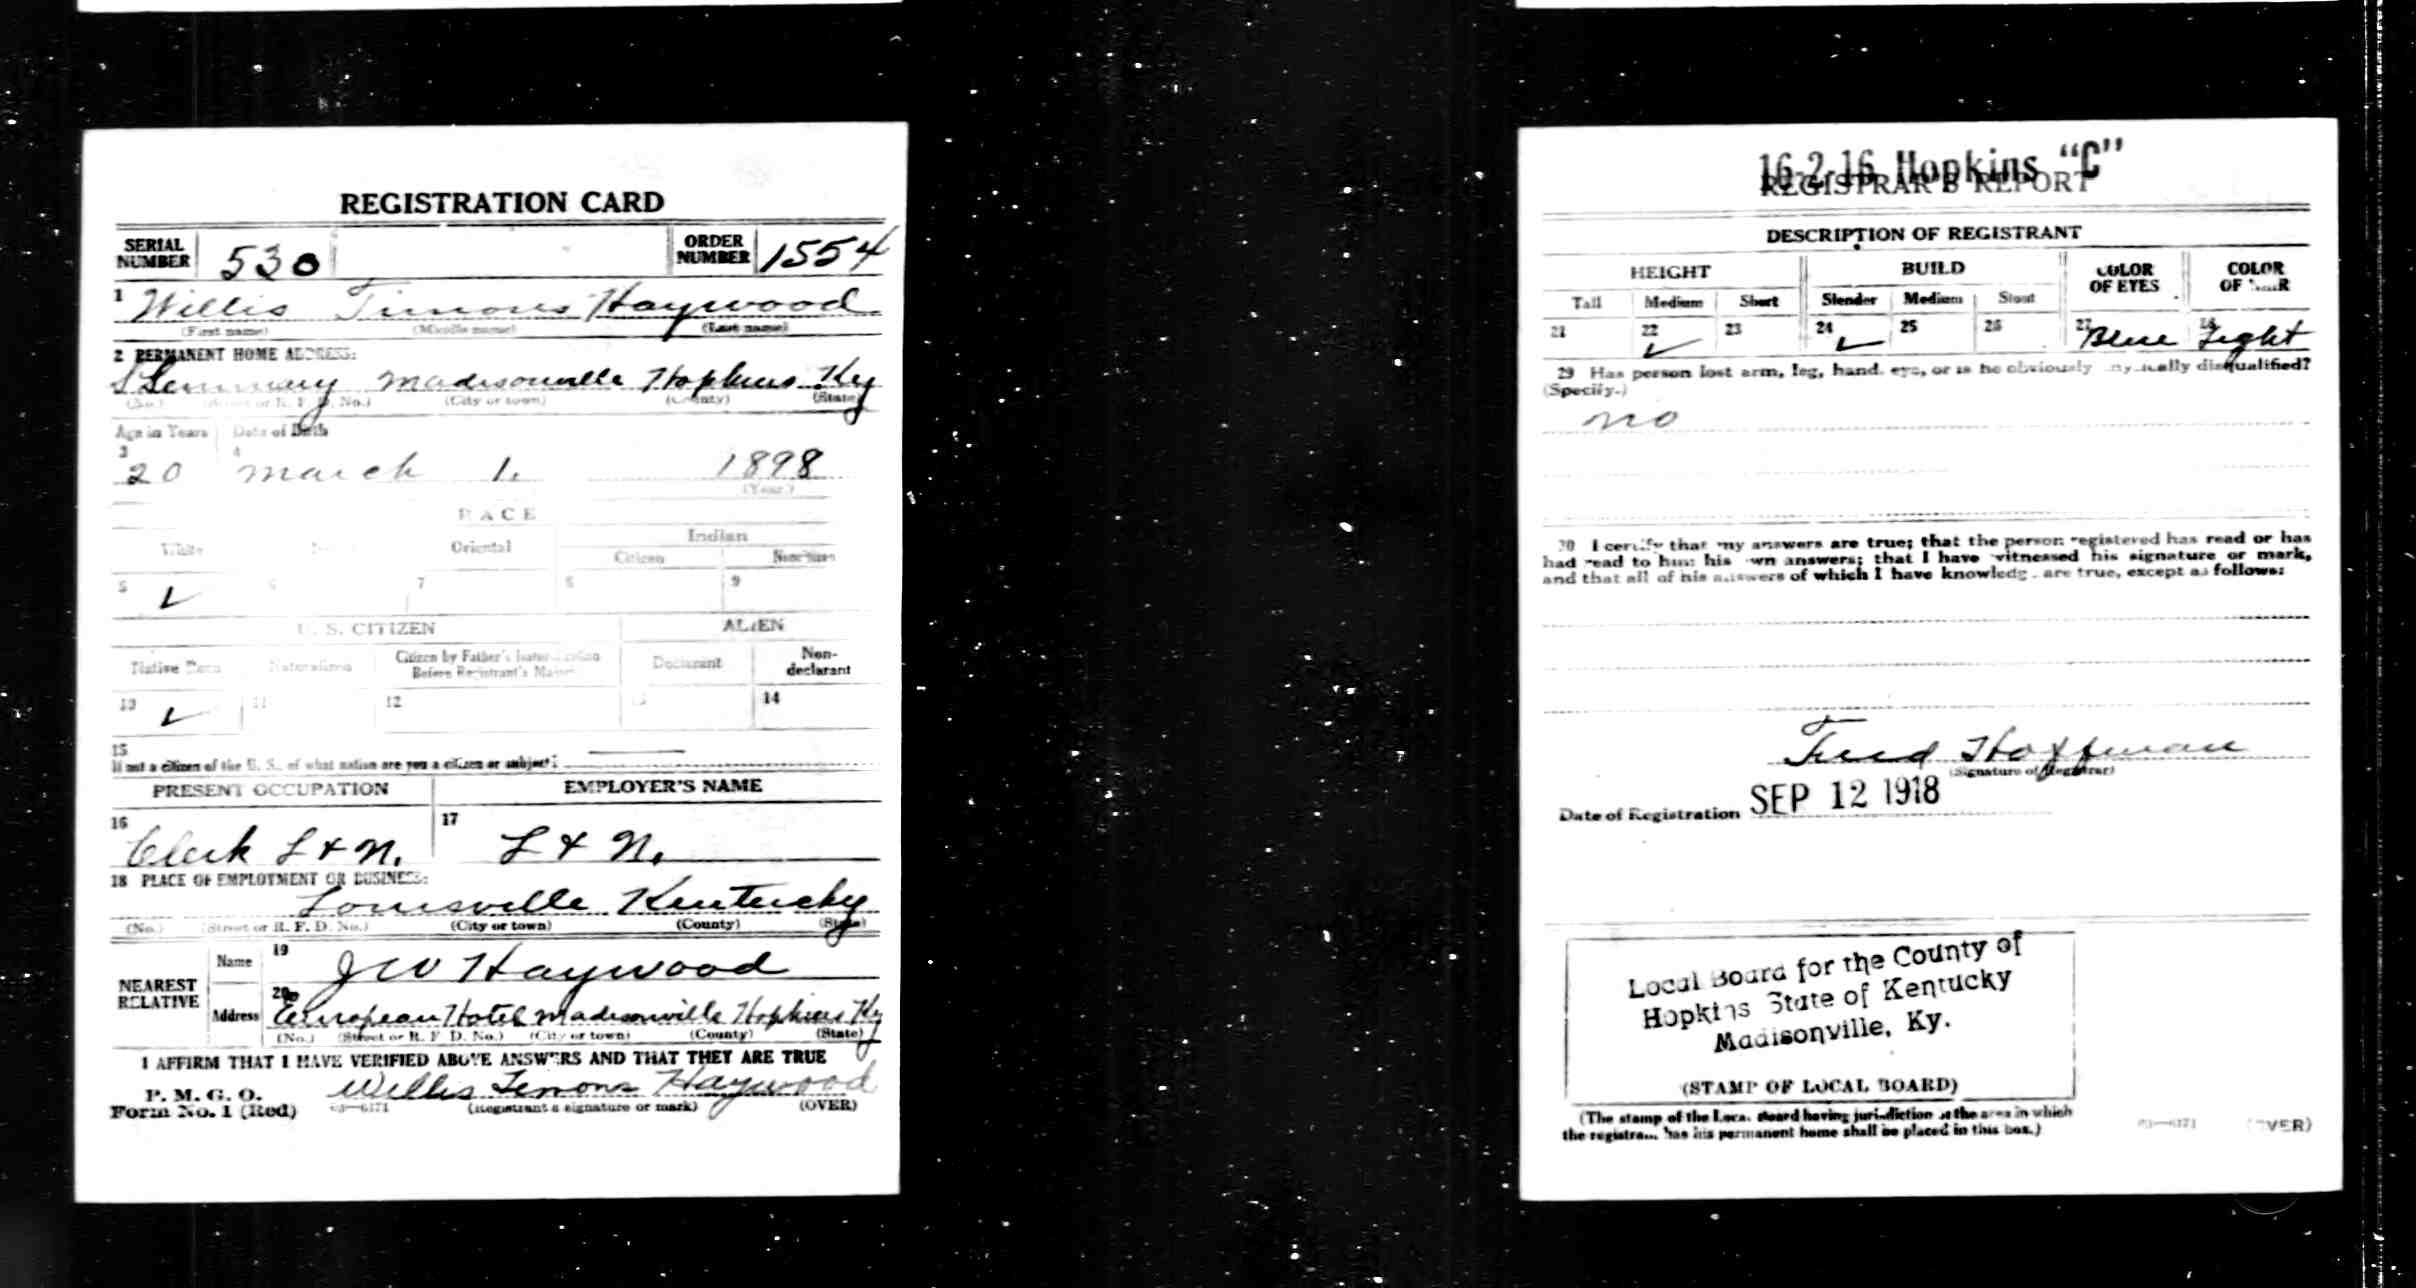 REGISTRATION CARD
SERIAL NUMBER 530 ORDER NUMBER 1554
1 Willis Timons Haywood
(First name) (Middle name) (Last name)
2 PERMANENT HOME ADDRESS:
Madisonville Hopkins Ky
(No.) (Street or R. F. D. No.) (City or town) (County) (State)
Age in Years Date of Birth
3 20 4 March 1. 1898
(Year)
RACE
White Oriental Indian
Citizen Noncitizen
5 ✓ 6 7 8 9
U. S. CITIZEN ALIEN
Native Born Naturalized Citizen by Father's Naturalization Before Registrant's Majority Declarant Non-declarant
10 ✓ 11 12 13 14
15
If not a citizen of the U. S., of what nation are you a citizen or subject?
PRESENT OCCUPATION EMPLOYER'S NAME
16 Clerk L & N. 17 L & N.
18 PLACE OF EMPLOYMENT OR BUSINESS:
Louisville Kentucky
(No.) (Street or R. F. D. No.) (City or town) (County) (State)
NEAREST RELATIVE Name 19 J W Haywood
Address 20 European Hotel Madisonville Hopkins Ky
(No.) (Street or R. F. D. No.) (City or town) (County) (State)
I AFFIRM THAT I HAVE VERIFIED ABOVE ANSWERS AND THAT THEY ARE TRUE
P. M. G. O.
Form No. 1 (Red) 03—6171 Willis Timons Haywood
(Registrant's signature or mark) (OVER)
16-2-16 Hopkins "C"
REGISTRAR'S REPORT
DESCRIPTION OF REGISTRANT
HEIGHT BUILD COLOR OF EYES COLOR OF HAIR
Tall Medium Short Slender Medium Stout
21 22 ✓ 23 24 ✓ 25 26 27 Blue 28 Light
29 Has person lost arm, leg, hand, eye, or is he obviously physically disqualified?
(Specify.)
no
30 I certify that my answers are true; that the person registered has read or has
had read to him his own answers; that I have witnessed his signature or mark,
and that all of his answers of which I have knowledge are true, except as follows:
Fred Hoffman
(Signature of Registrar)
Date of Registration SEP 12 1918
Local Board for the County of
Hopkins State of Kentucky
Madisonville, Ky.
(STAMP OF LOCAL BOARD)
(The stamp of the Local Board having jurisdiction of the area in which
the registrant has his permanent home shall be placed in this box.)
03—6171 (OVER)